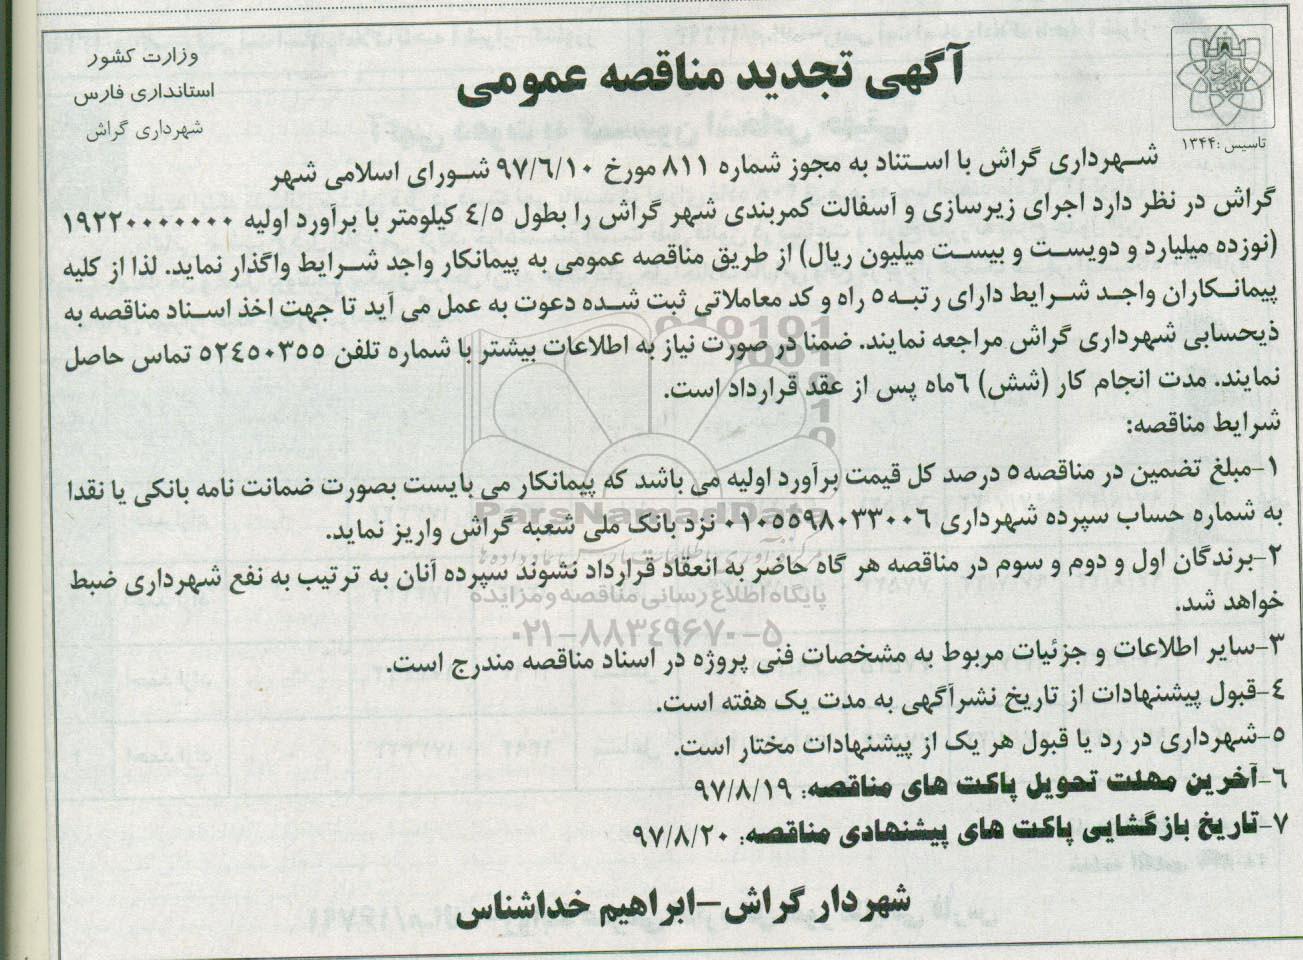 وزارت کشور
استانداری فارس
شهرداری گراش
تاسیس :۱۳۴۴
آگهی تجدید مناقصه عمومی
شهرداری گراش با استناد به مجوز شماره ۸۱۱ مورخ ۹۷/۶/۱۰ شورای اسلامی شهر
گراش در نظر دارد اجرای زیرسازی و آسفالت کمربندی شهر گراش را بطول ۴/۵ کیلومتر با برآورد اولیه ۱۹۲۲۰۰۰۰۰۰۰
(نوزده میلیارد و دویست و بیست میلیون ریال) از طریق مناقصه عمومی به پیمانکار واجد شرایط واگذار نماید. لذا از کلیه
پیمانکاران واجد شرایط دارای رتبه ۵ راه و کد معاملاتی ثبت شده دعوت به عمل می آید تا جهت اخذ اسناد مناقصه به
ذیحسابی شهرداری گراش مراجعه نمایند. ضمنا در صورت نیاز به اطلاعات بیشتر با شماره تلفن ۵۲۴۵۰۳۵۵ تماس حاصل
نمایند. مدت انجام کار (شش) ۶ماه پس از عقد قرارداد است.
شرایط مناقصه:
۱-مبلغ تضمین در مناقصه ۵ درصد کل قیمت برآورد اولیه می باشد که پیمانکار می بایست بصورت ضمانت نامه بانکی یا نقدا
به شماره حساب سپرده شهرداری ۰۱۰۵۵۹۸۰۳۳۰۰۶ نزد بانک ملی شعبه گراش واریز نماید.
ParsNamadData
۲-برندگان اول و دوم و سوم در مناقصه هر گاه حاضر به انعقاد قرارداد نشوند سپرده آنان به ترتیب به نفع شهرداری ضبط
خواهد شد.
پایگاه اطلاع رسانی مناقصه و مزایده
۰۲۱-۸۸۳۴۹۶۷۰-۵
۳-سایر اطلاعات و جزئیات مربوط به مشخصات فنی پروژه در اسناد مناقصه مندرج است.
۴-قبول پیشنهادات از تاریخ نشرآگهی به مدت یک هفته است.
۵-شهرداری در رد یا قبول هر یک از پیشنهادات مختار است.
۶-آخرین مهلت تحویل پاکت های مناقصه: ۹۷/۸/۱۹
۷-تاریخ بازگشایی پاکت های پیشنهادی مناقصه: ۹۷/۸/۲۰
شهردار گراش-ابراهیم خداشناس